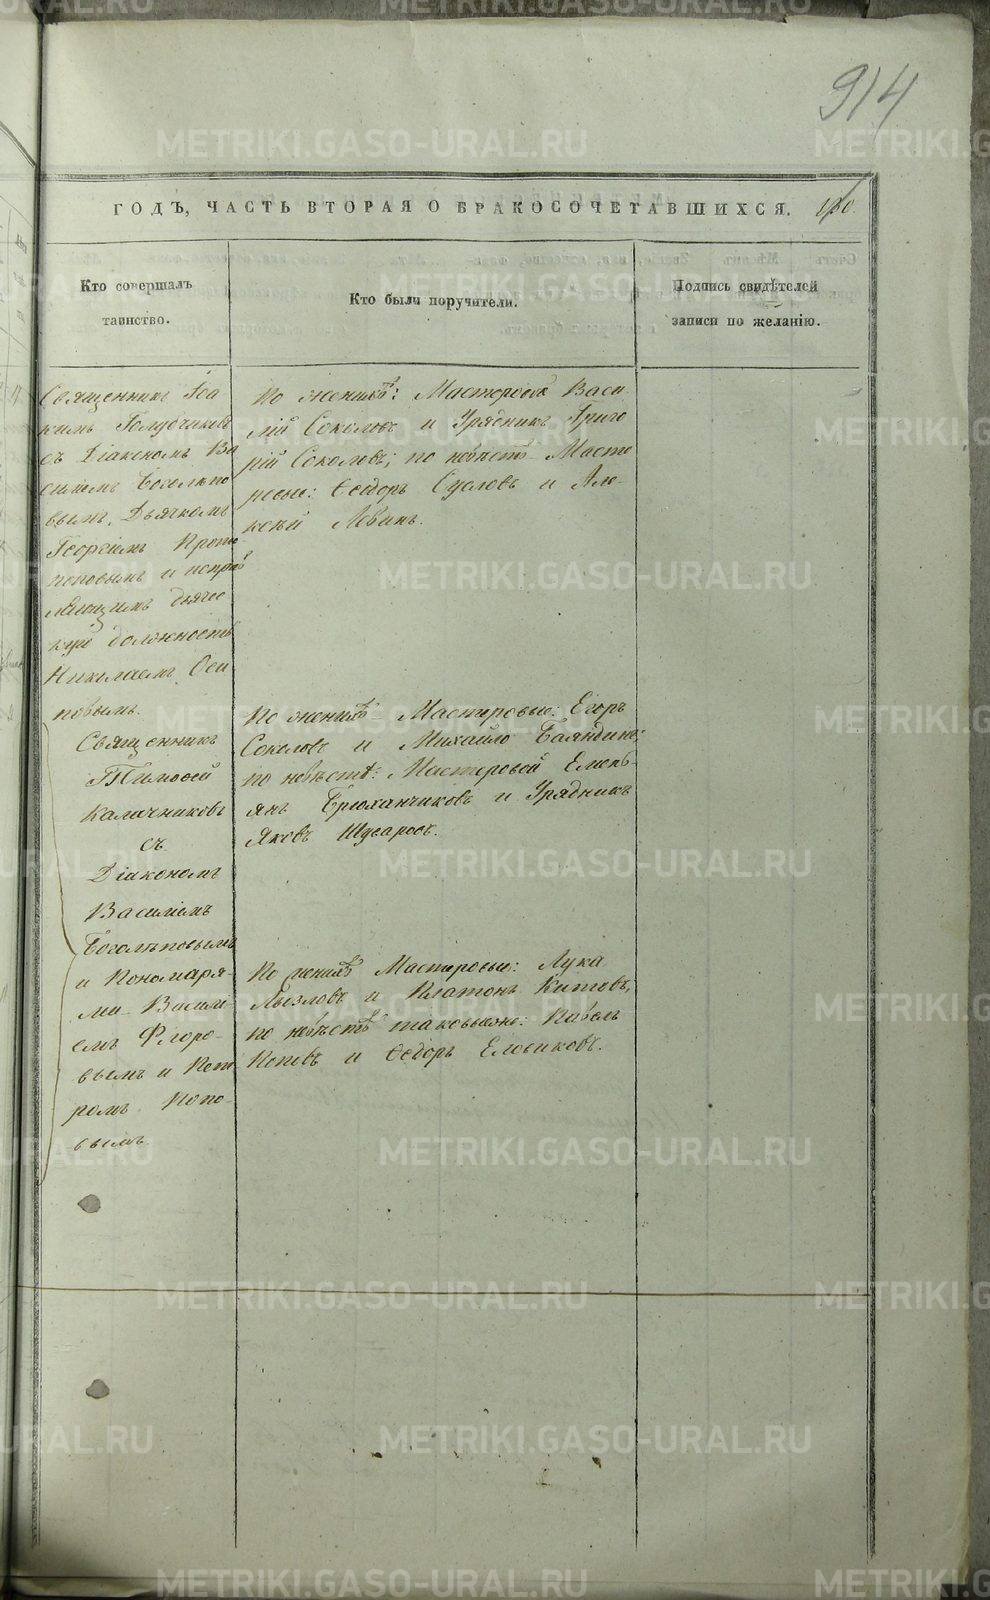 914
ГОДЪ, ЧАСТЬ ВТОРАЯ О БРАКОСОЧЕТАВШИХСЯ.
Кто совершалъ
таинство.
Кто были поручители.
Подпись свидѣтелей
записи по желанію.
Священникъ Іоа
кимъ Голубчиковъ
съ Діакономъ Ва
силіемъ Боголѣпо
вымъ, Дьячкомъ
Георгіемъ Прото
поповымъ и исправ
ляющимъ дьячес
кую должность
Николаемъ Оси
повымъ.
По женихѣ: Мастеровой Васи
лій Соколовъ и Урядникъ Григо
рій Соколовъ; по невѣстѣ Масте
ровые: Ѳедоръ Сусловъ и Але-
ксѣй Левинъ.
Священникъ
Тимоѳей
Калачниковъ
съ
Діакономъ
Василіемъ
Боголѣповымъ
и Пономаря-
ми Василі
емъ Флоро-
вымъ и Пет
ромъ Попо-
вымъ.
По женихѣ Мастеровые: Егоръ
Соколовъ и Михайло Баяндинъ;
по невѣстѣ: Мастеровой Емель-
янъ Брюханчиковъ и Урядникъ
Яковъ Шуваровъ.
По женихѣ Мастеровые: Лука
Лызловъ и Платонъ Китовъ,
по невѣстѣ таковыеже: Павелъ
Поповъ и Ѳедоръ Еловиковъ.
METRIKI.GASO-URAL.RU